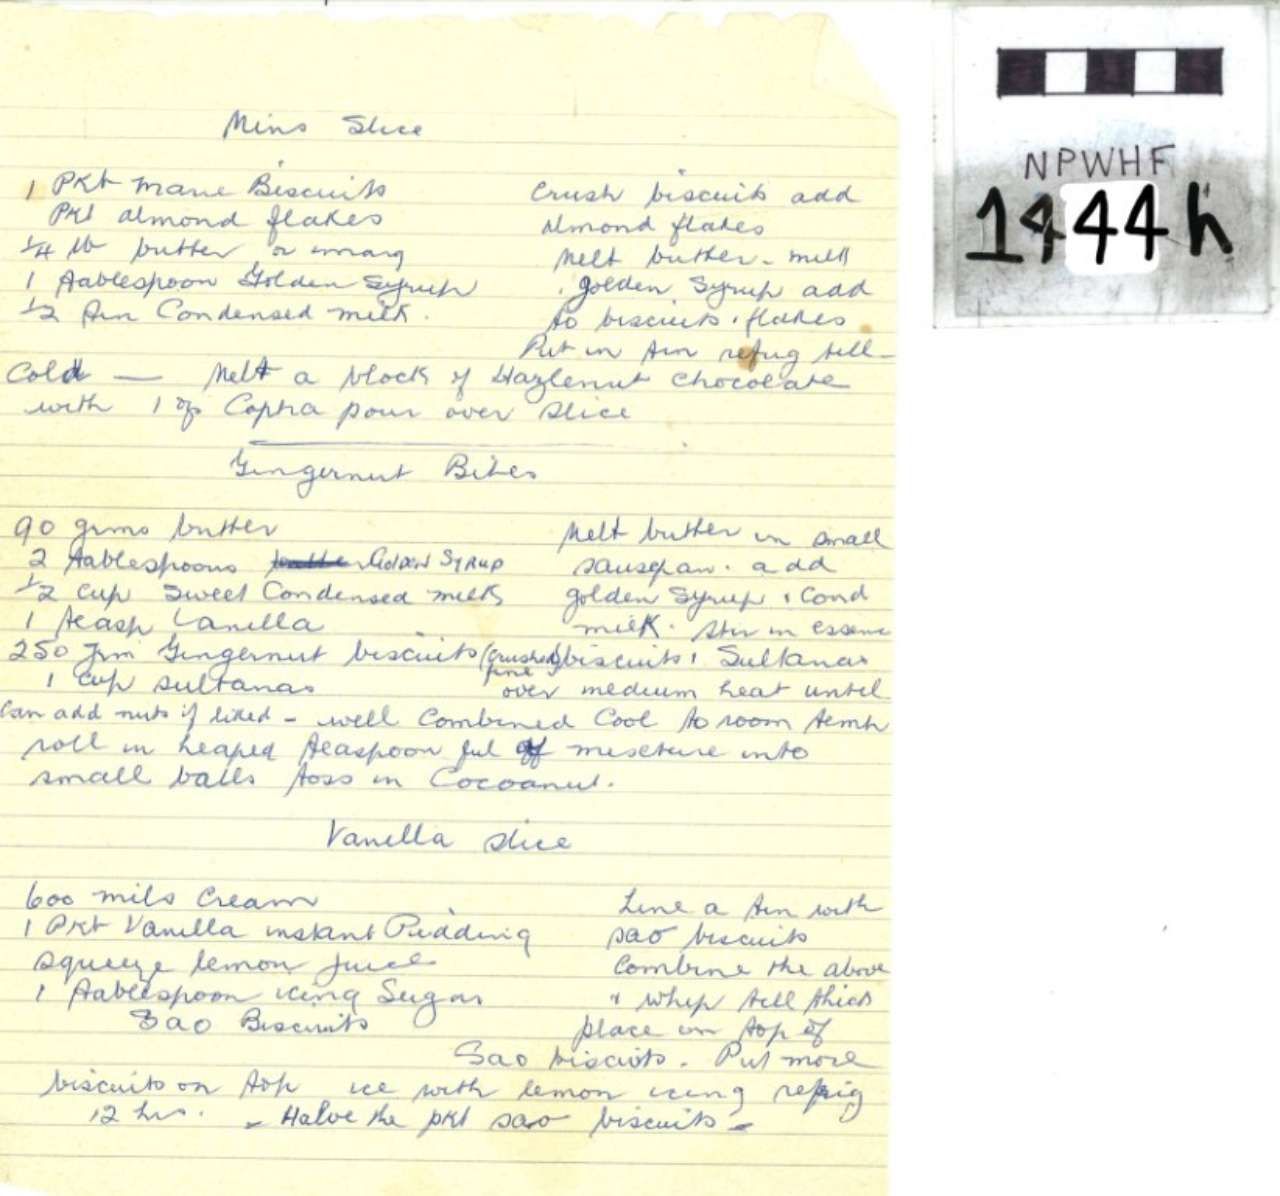 Mins Slice
1 Pkt marie Biscuits
Pkt almond flakes
1/4 lb butter or marg
1 Tablespoon Golden Syrup
1/2 tin Condensed milk.
Crush biscuits add
almond flakes
Melt butter - milk
. golden Syrup add
to biscuits . flakes
Put in tin refrig till -
Cold — Melt a block of Hazlenut chocolate
with 1 oz Copha pour over slice
Gingernut Bites
90 grms butter
2 tablespoons Golden Syrup
1/2 cup Sweet Condensed milk
1 teasp Vanilla
250 grm Gingernut biscuits (crushed fine)
1 cup sultanas
Melt butter in small
sausepan. add
golden Syrup . Cond
milk. Stir in essence
biscuits . Sultanas
over medium heat until
Can add nuts if liked - well Combined Cool to room temp
roll in heaped teaspoon ful of mixture into
small balls toss in Cocoanut.
Vanilla Slice
600 mils Cream
1 Pkt Vanilla instant Pudding
squeeze lemon juice
1 tablespoon icing Sugar
Sao Biscuits
Line a tin with
sao biscuits
Combine the above
& whip till thick
place on top of
Sao biscuits. Put more
biscuits on top ice with lemon icing refrig
12 hrs. - Halve the pkt sao biscuits -
NPWHF
1444h